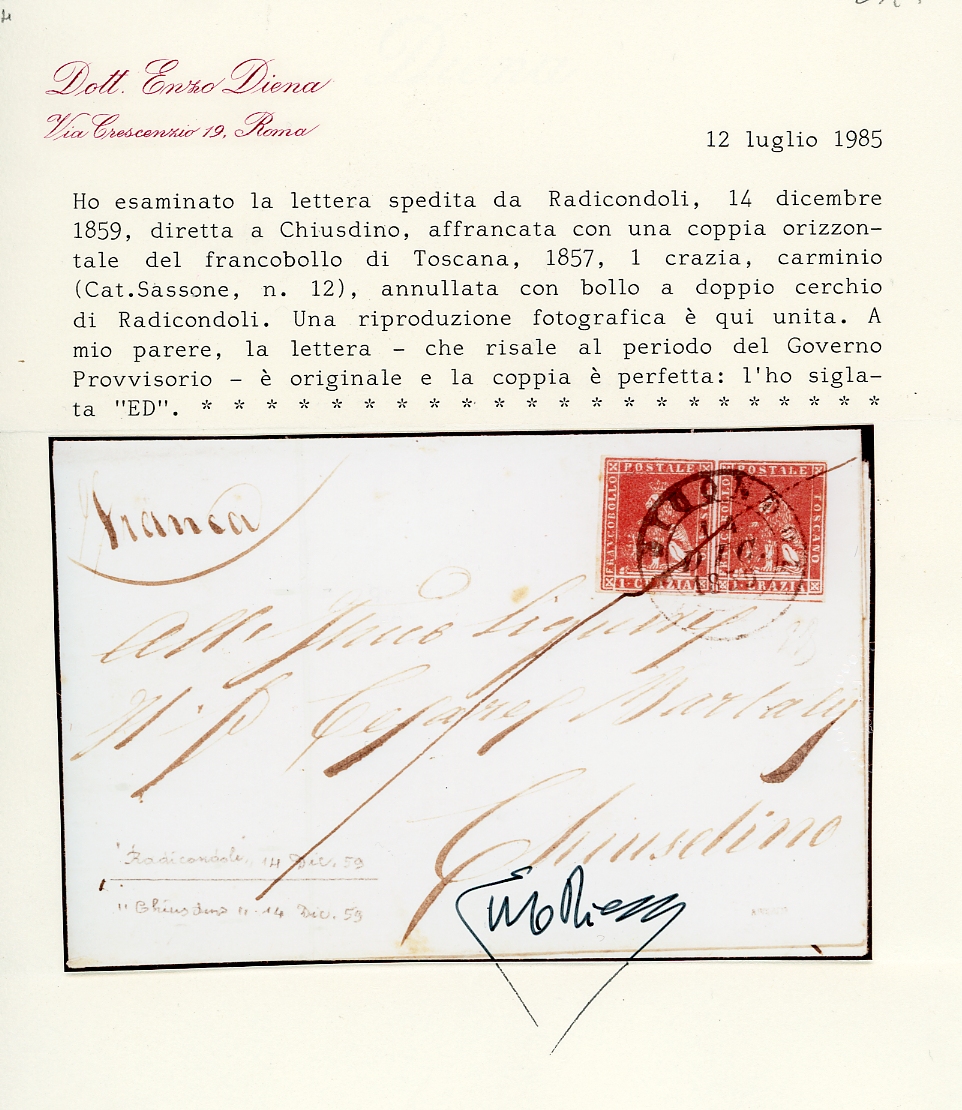 Dott. Enzo Diena
Via Crescenzio 19, Roma
12 luglio 1985
Ho esaminato la lettera spedita da Radicondoli, 14 dicembre
1859, diretta a Chiusdino, affrancata con una coppia orizzon-
tale del francobollo di Toscana, 1857, 1 crazia, carminio
(Cat.Sassone, n. 12), annullata con bollo a doppio cerchio
di Radicondoli. Una riproduzione fotografica è qui unita. A
mio parere, la lettera - che risale al periodo del Governo
Provvisorio - è originale e la coppia è perfetta: l'ho sigla-
ta "ED". * * * * * * * * * * * * * * * * * * * * *
Franca
POSTALE POSTALE
FRANCOBOLLO
TOSCANO
14
DIC.
1859
1 CRAZIA 1 CRAZIA
Chiusdino
Radicondoli, 14 Dic. 59
" Chiusdino " 14 Dic. 59
Enzo Diena